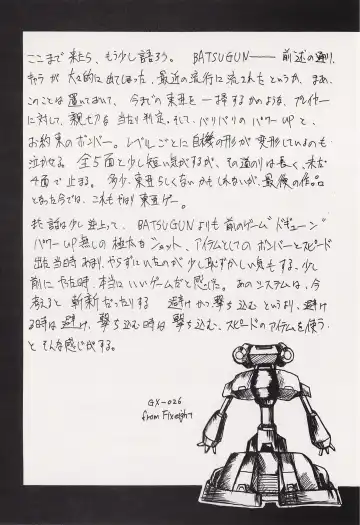 ここまで来たら、もう少し語ろう。 BATSUGUN―― 前述の通り、
キャラが大々的に出てしまった、最近の流行に流されたというか、まあ、
このことは置いておいて、今までの東亜を一掃するかのような、プレイヤー
に対して、親切な当たり判定、そして、バリバリのパワーUPと、
お約束のボンバー。レベルごとに自機の形が変形しているのも
泣かせる。全5面と少し短い気がするが、その道のりは長く、未だ
4面で止まる。多少、東亜らしくないかもしれないが、最後の作品
となった今では、これもやはり東亜ゲー。
また話は少し変わって、BATSUGUNよりも前のゲーム"ドギューン"
パワーUP無しの極太なショット、アイテムとしてのボンバーとスピード
出た当時あまり、やらずにいたのが少し恥ずかしい気もする。少し
前にやった時、本当にいいゲームだと感じた。あのシステムは、今
考えると、斬新だったりする 避けかつ撃ち込むというより、避け
る時は避け、撃ち込む時は撃ち込む、スピードのアイテムを使う
と そんな感じがする。
GX-026
from Fixeight